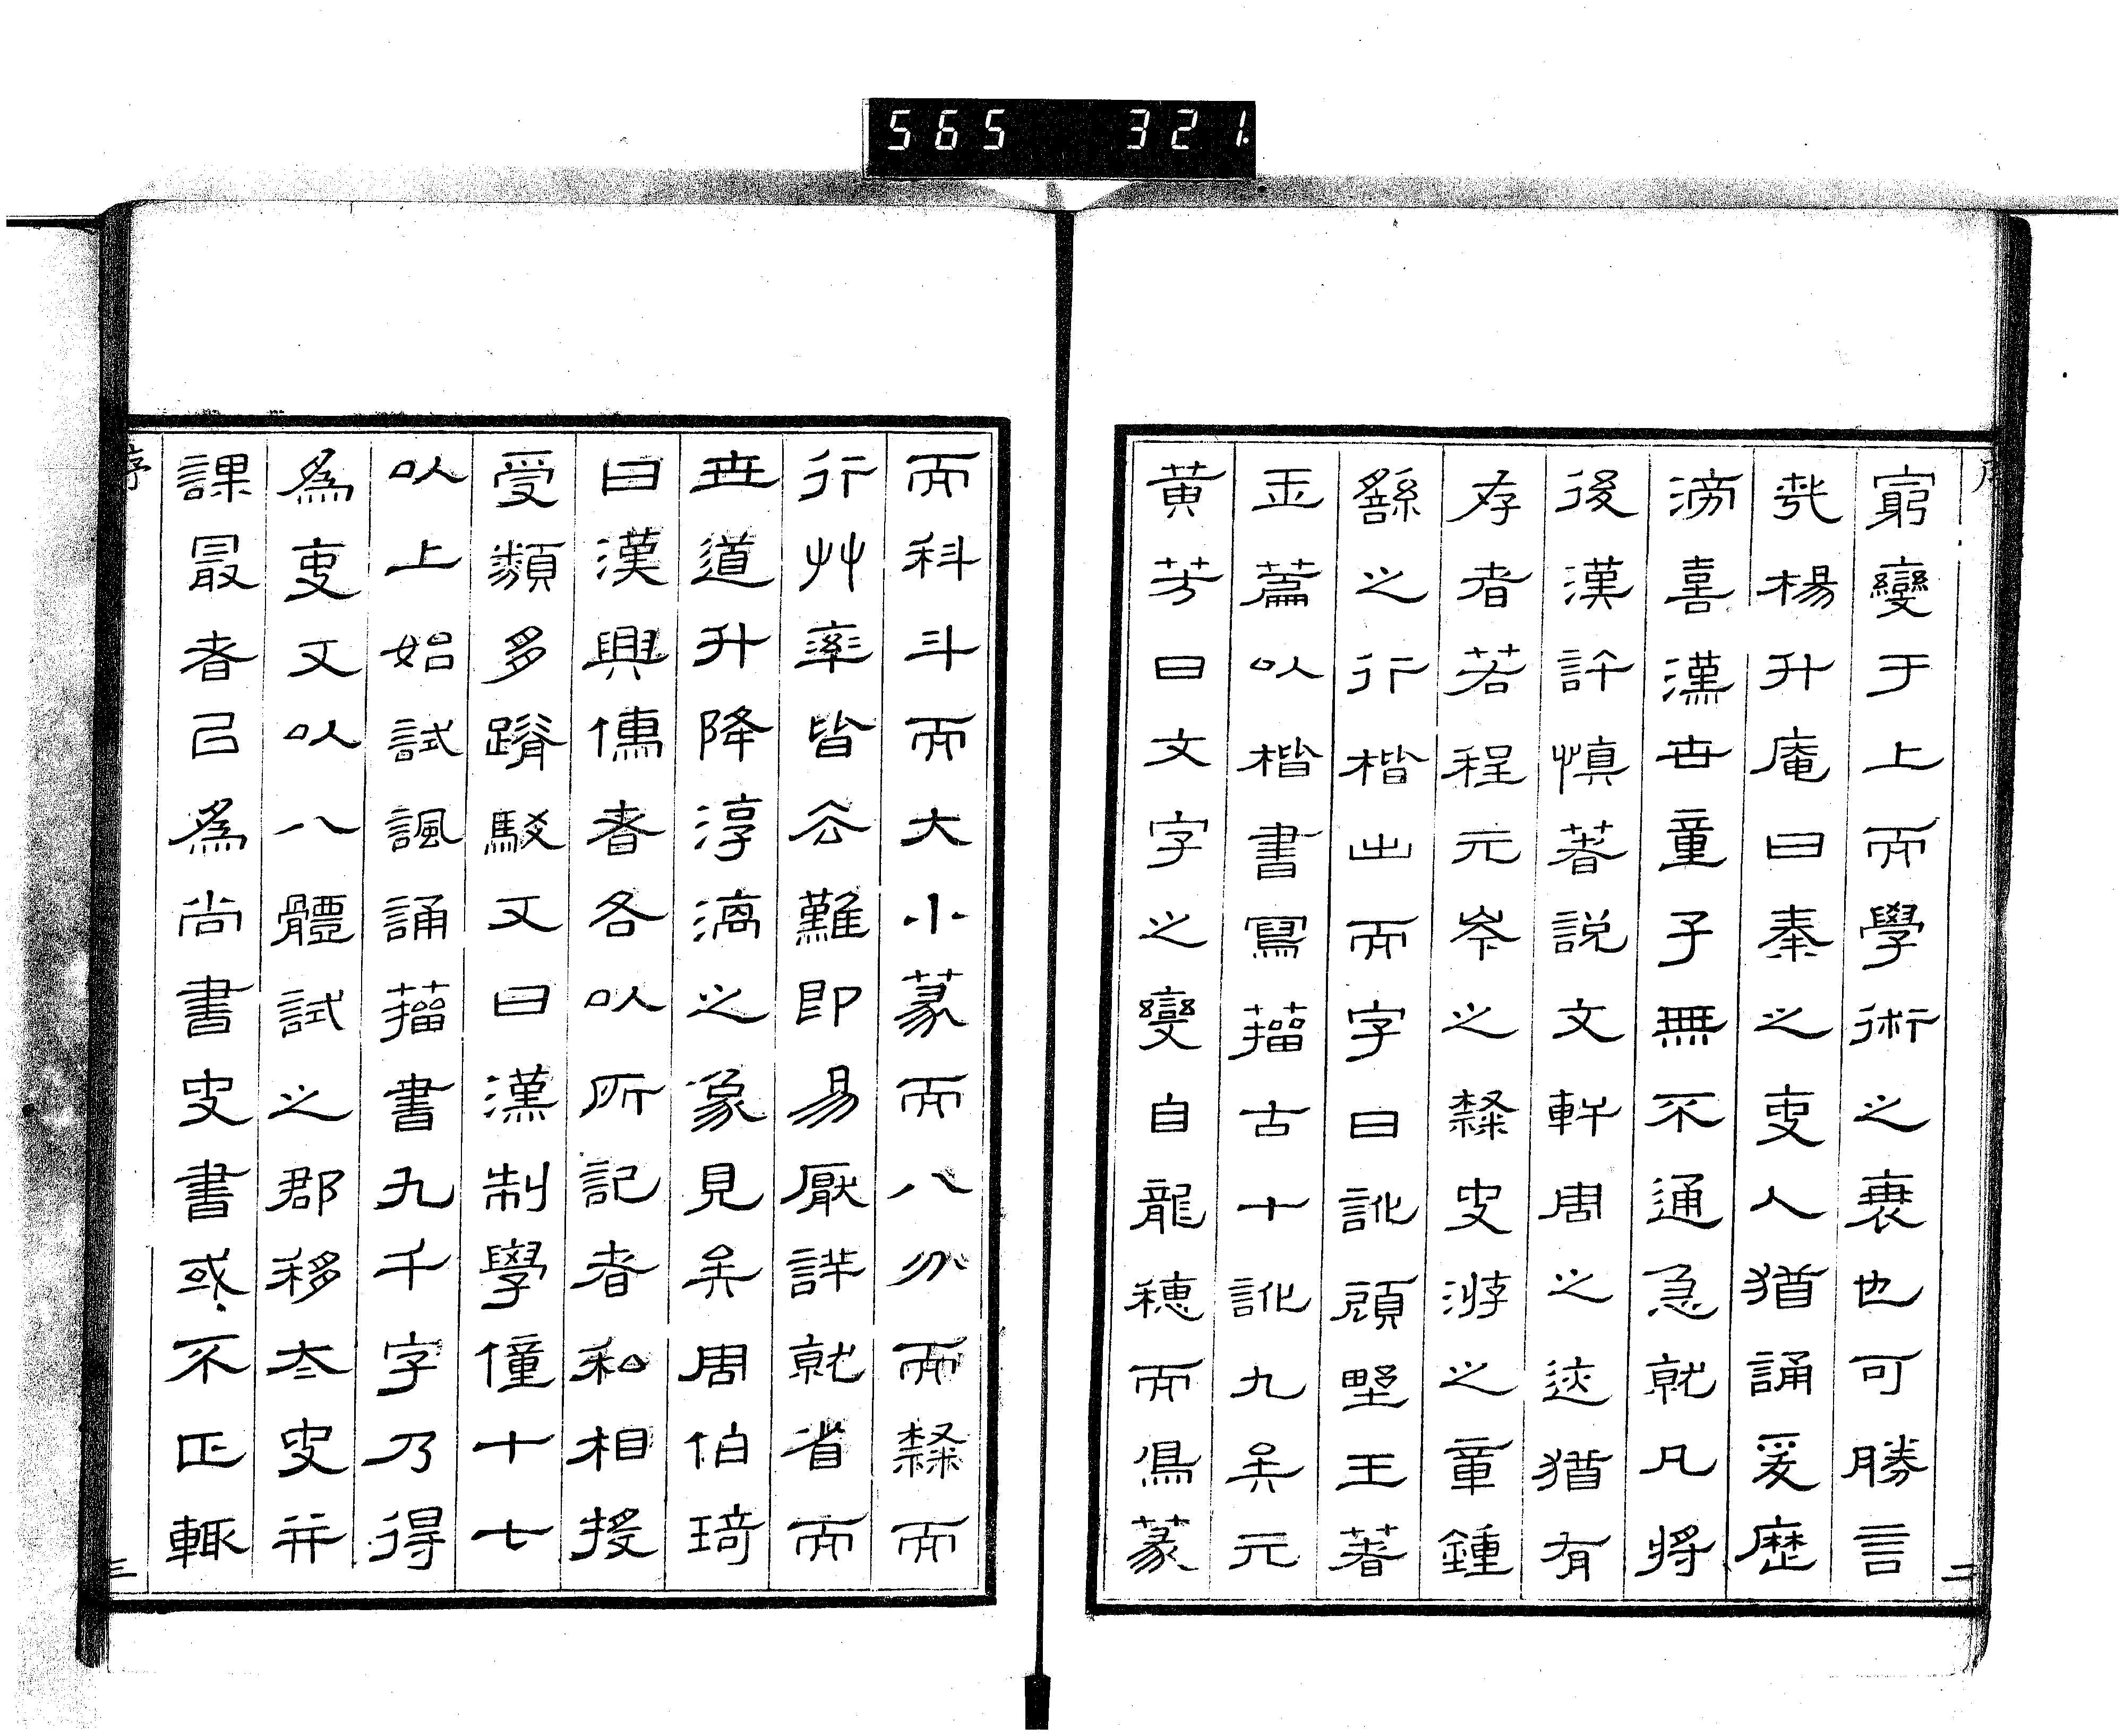 565 321
序
窮變于上而學術之衰也可勝言
哉楊升庵曰秦之吏人猶誦爰歷
滂喜漢世童子無不通急就凡將
後漢許慎著說文軒周之迹猶有
存者若程元岑之隸史游之章鍾
繇之行楷出而字曰訛顧野王著
玉篇以楷書寫籀古十訛九矣元
黃芳曰文字之變自龍穗而鳥篆
二
而科斗而大小篆而八分而隸而
行艸率皆去難即易厭詳就省而
世道升降淳漓之象見矣周伯琦
曰漢興傳者各以所記者私相授
受類多踳駁又曰漢制學僮十七
以上始試諷誦籀書九千字乃得
為吏又以八體試之郡移太史并
課最者以為尚書史書或不正輒
序
三